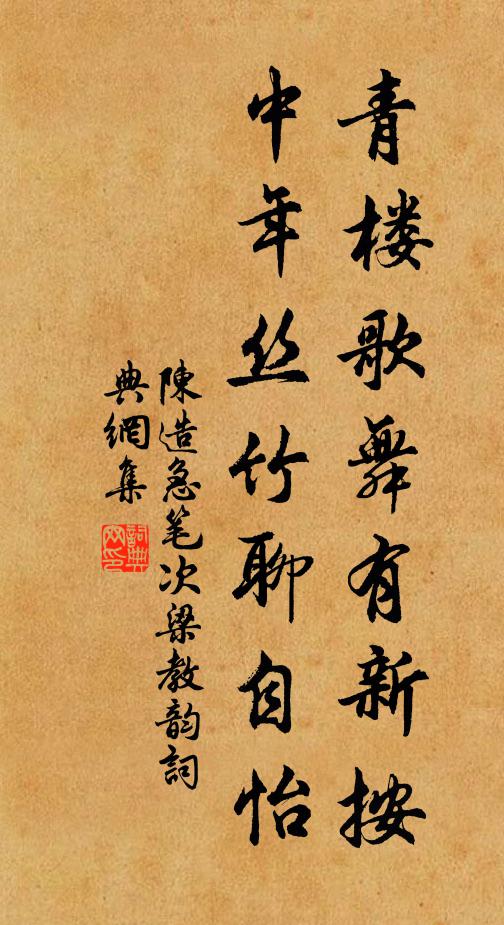 青楼歌舞有新按
中年丝竹聊自怡
陳造急笔次梁教韵詞
典網集
詞典网印